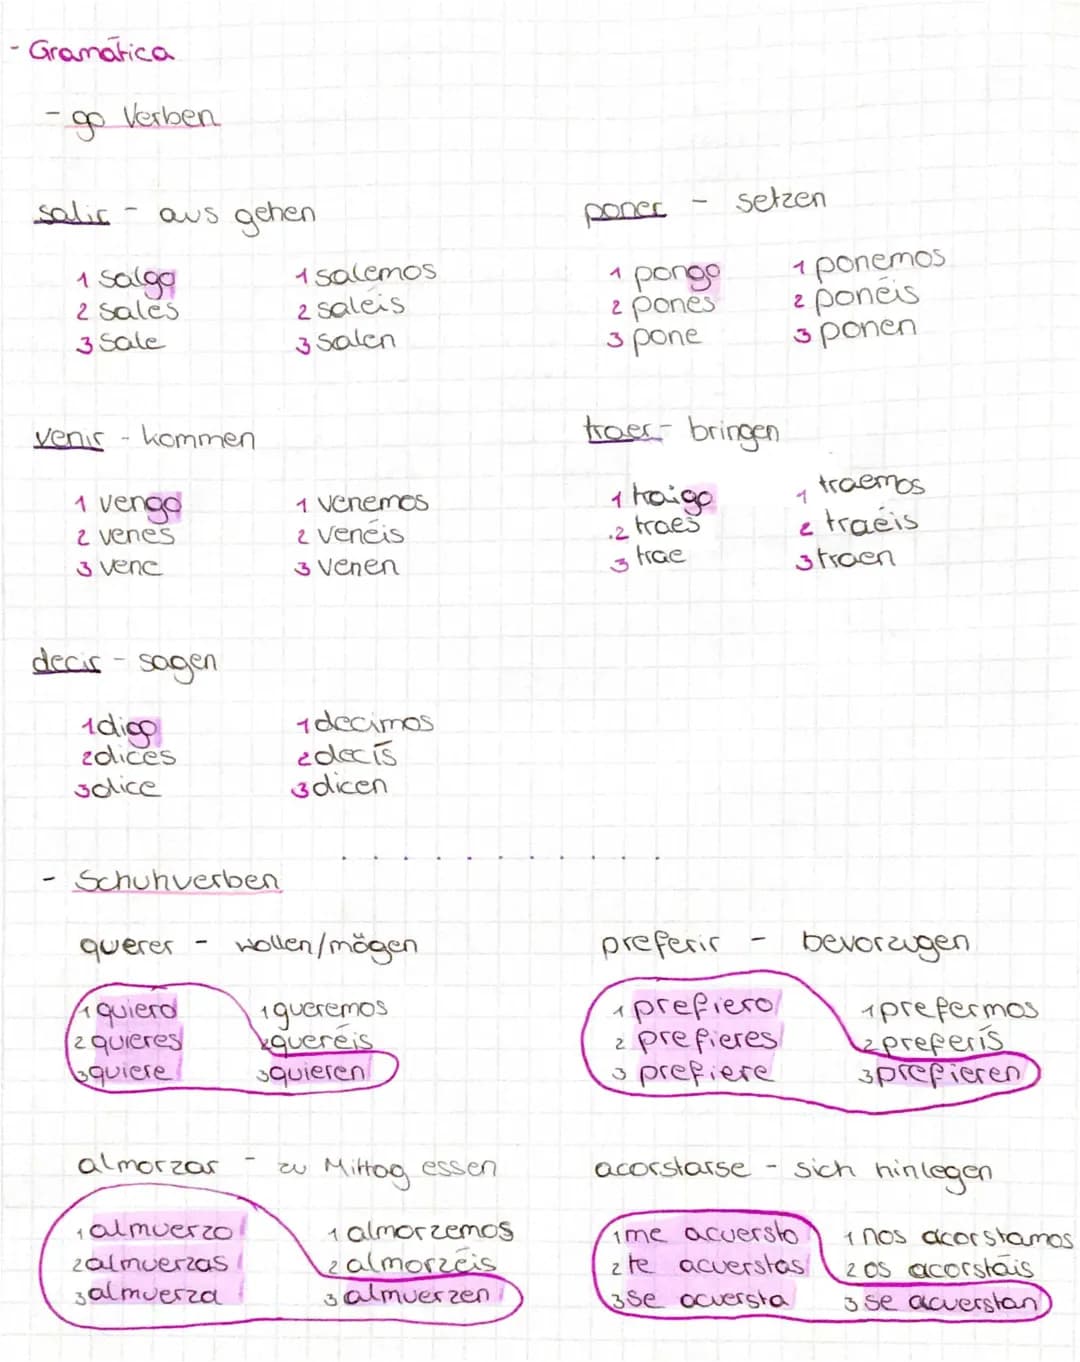 - Gramática
- go Verben
salir - aus gehen
1 salgo
2 sales
3 sale
1 salemos
2 saléis
3 salen
poner - setzen
1 pongo
2 pones
3 pone
1 ponemos
2 ponéis
3 ponen
venir - kommen
1 vengo
2 venes
3 vene
1 venemos
2 venéis
3 venen
traer - bringen
1 traigo
2 traes
3 trae
1 traemos
2 traéis
3 traen
decir - sagen
1 digo
2 dices
3 dice
1 decimos
2 decís
3 dicen
- Schuhverben
querer - wollen/mögen
1 quiero
2 quieres
3 quiere
1 queremos
2 queréis
3 quieren
preferir - bevorzugen
1 prefiero
2 prefieres
3 prefiere
1 prefermos
2 preferís
3 prefieren
almorzar - zu Mittag essen
1 almuerzo
2 almuerzas
3 almuerza
1 almorzemos
2 almorzéis
3 almuerzen
acorstarse - sich hinlegen
1 me acuersto
2 te acuerstas
3 se acuersta
1 nos acorstamos
2 os acorstáis
3 se acuerstan